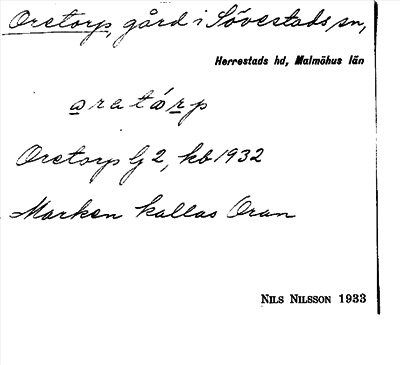 Oretorp, gård i Sövestads sn,
Herrestads hd, Malmöhus län
aratårp
Oretorp lj 2, kb 1932
Marken kallas Oran
NILS NILSSON 1933